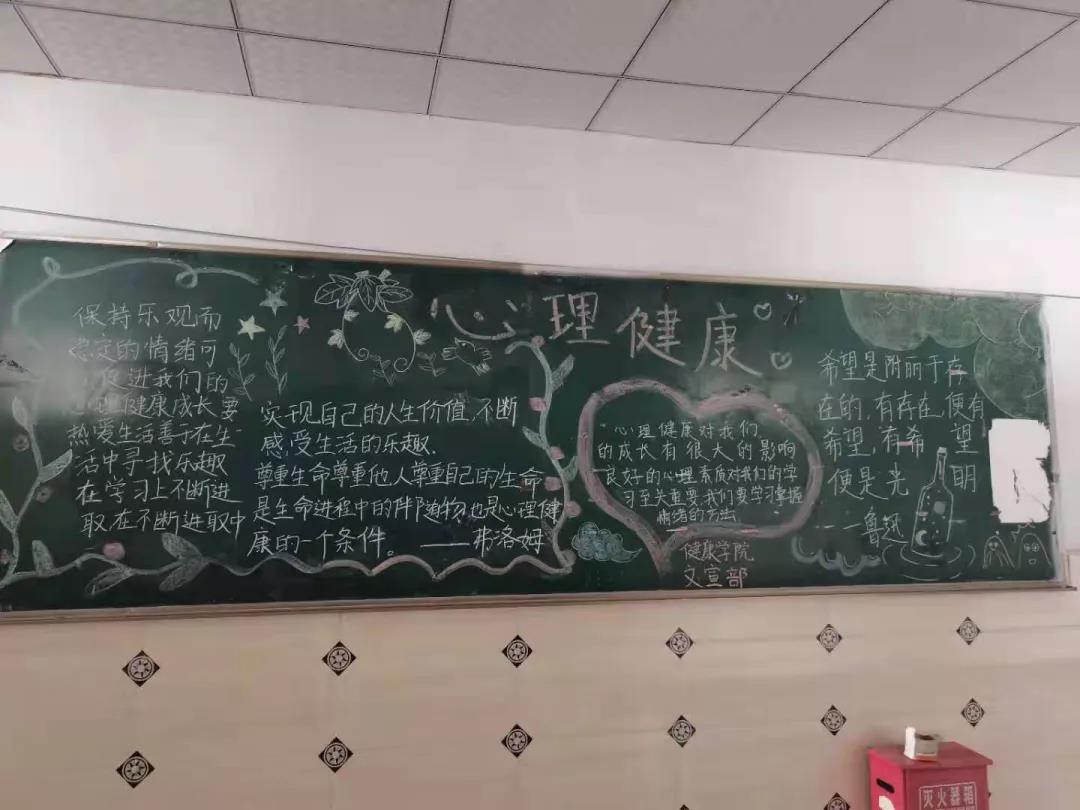 心理健康
保持乐观而
稳定的情绪可
促进我们的
心理健康成长要
热爱生活善于在生
活中寻找乐趣
在学习上不断进
取在不断进取中
实现自己的人生价值,不断
感受生活的乐趣.
尊重生命尊重他人尊重自己的生命
是生命进程中的伴随物也是心理健
康的一个条件。——弗洛姆
心理健康对我们
的成长有很大的影响
良好的心理素质对我们的学
习至关重要我们要学习掌握
情绪的方法
健康学院
文宣部
希望是附丽于存
在的,有存在,便有
希望,有希望
便是光明
——鲁迅
灭火器箱